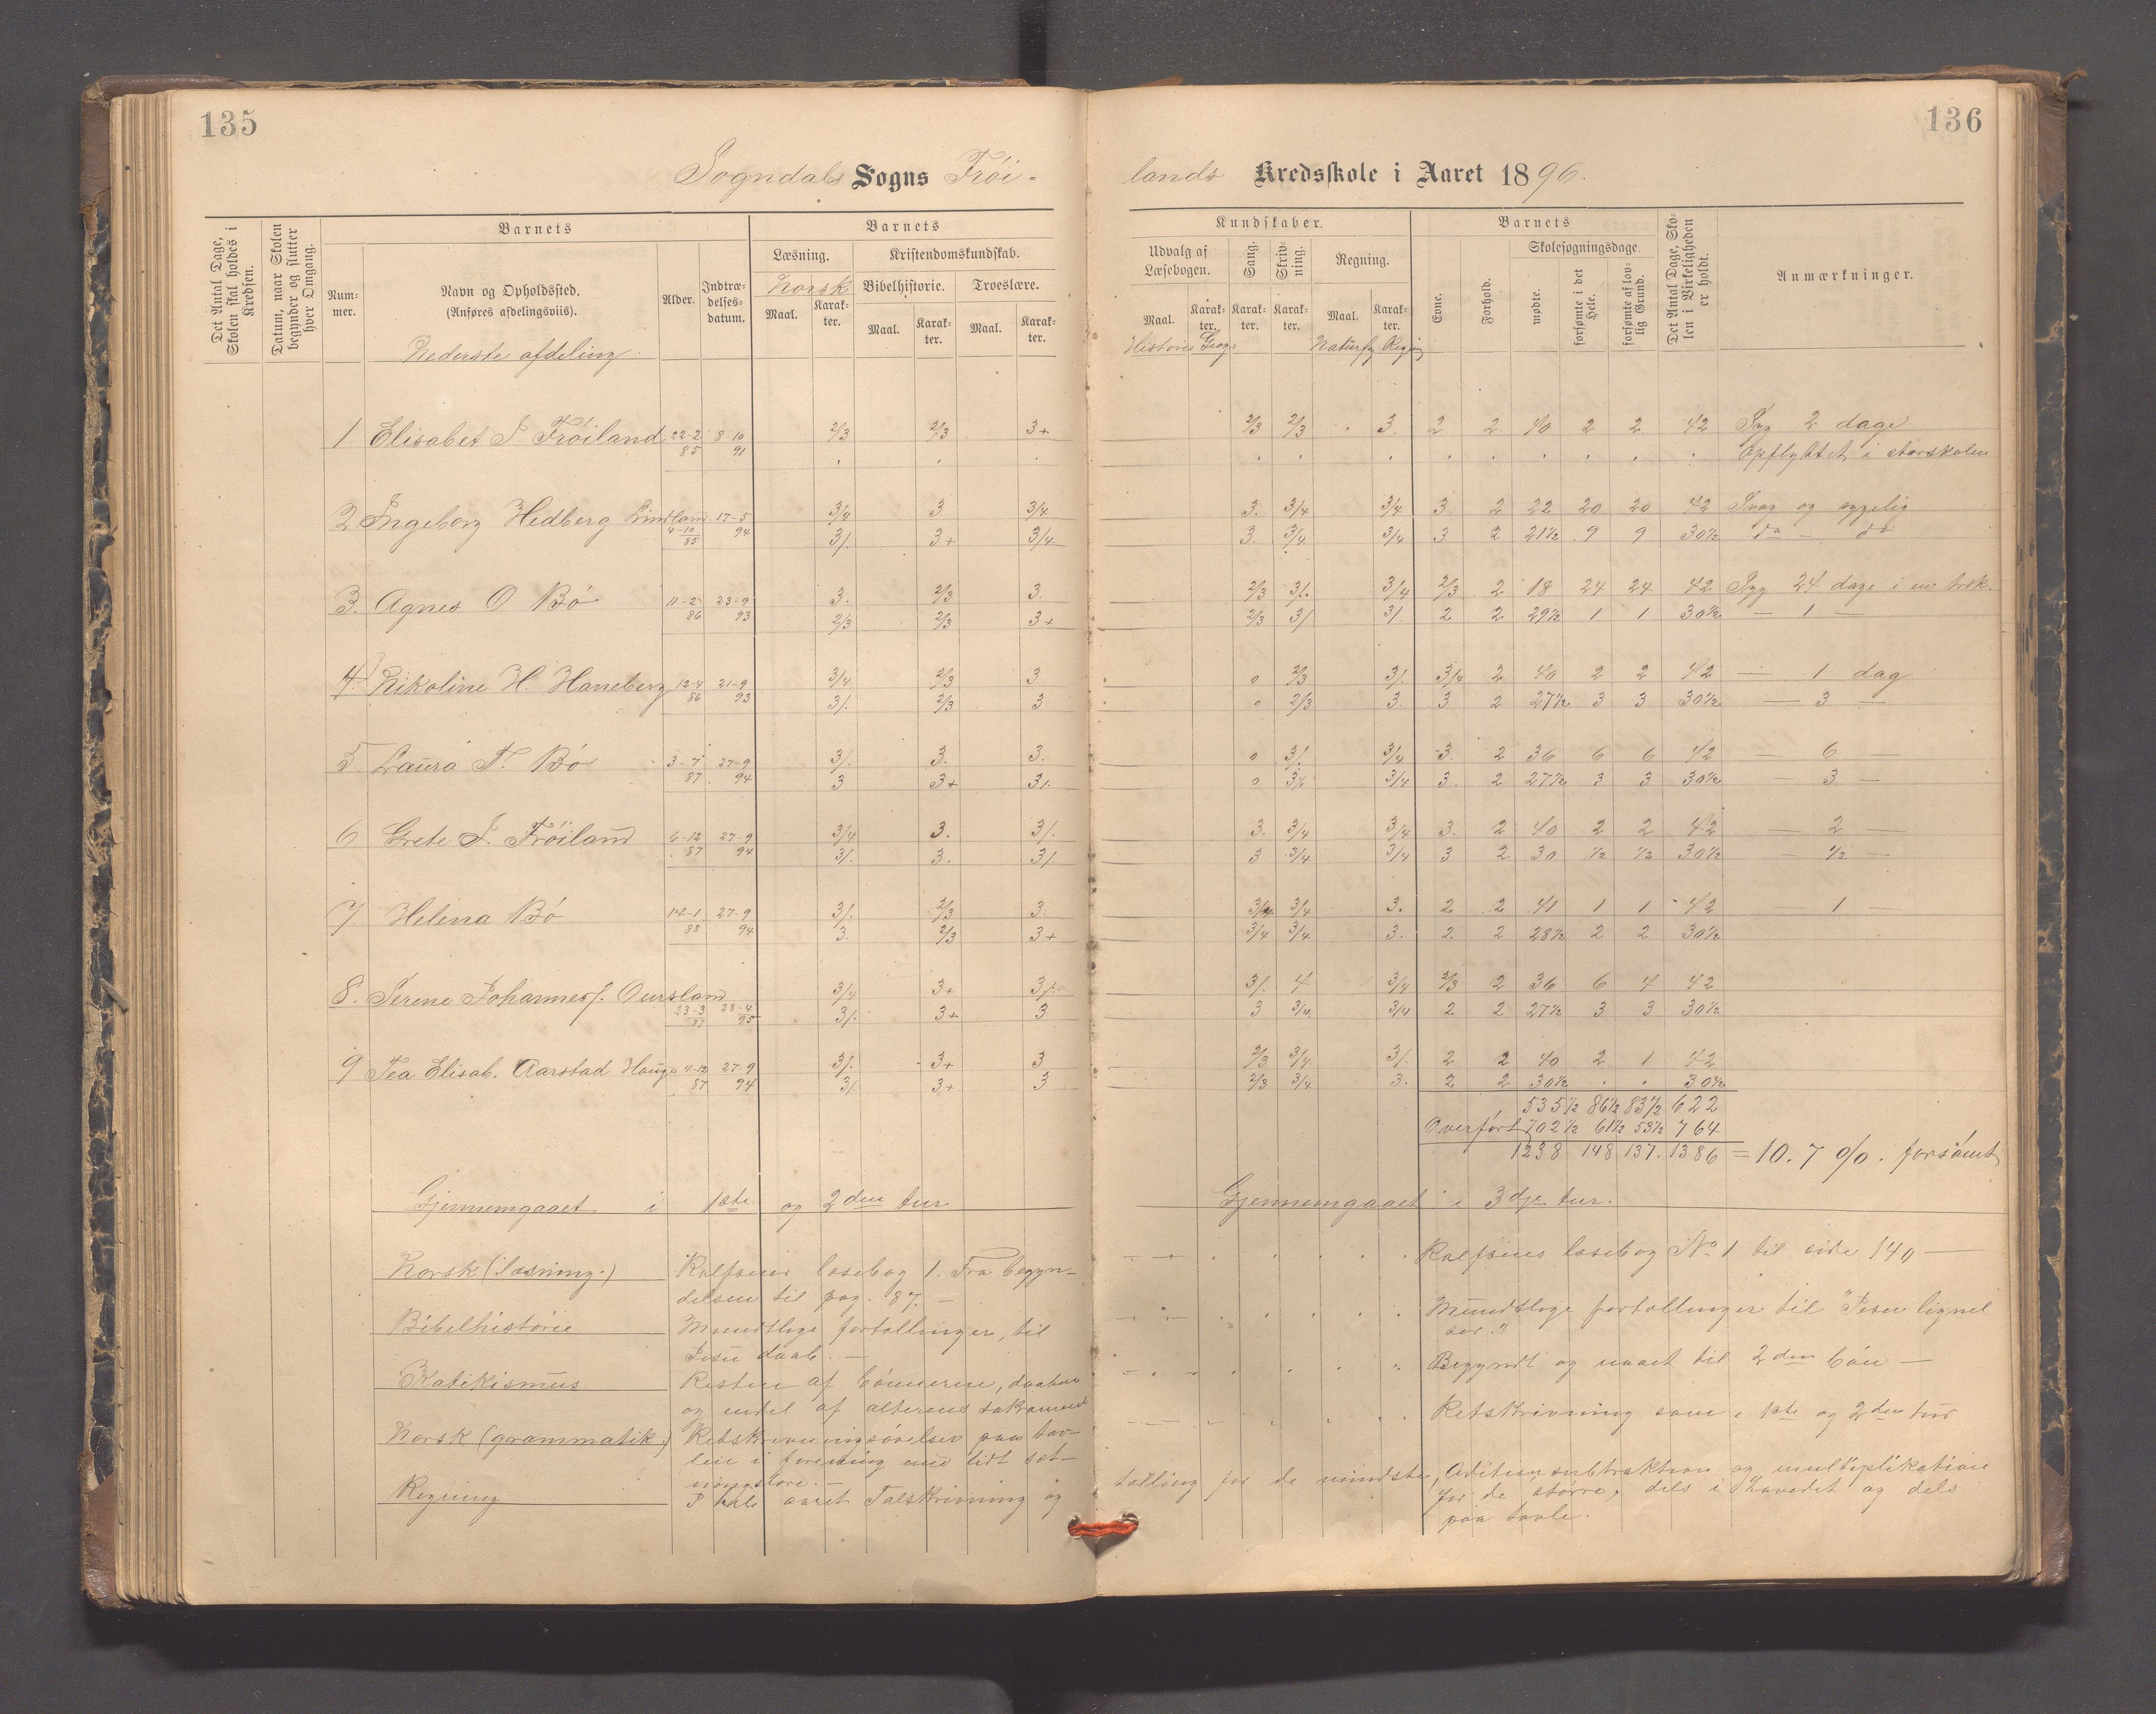 135
136
Sogndals Sogns Frøi-
lands Kredsskole i Aaret 1896.
Det Antal Dage, Skolen skal holdes i Kredsen.
Datum, naar Skolen begynder og slutter hver Omgang.
Barnets
Nummer.
Navn og Opholdssted.
(Anføres afdelingsviis).
Alder.
Indtrædelsesdatum.
Barnets
Læsning.
Norsk
Maal. Karakter.
Kristendomskundskab.
Bibelhistorie. Troeslære.
Maal. Karakter. Maal. Karakter.
Kundskaber.
Udvalg af Læsebogen.
Maal. Karakter.
Historie Geogr
Sang. Karakter.
Skrivning. Karakter.
Regning.
Maal. Karakter.
Naturfg Regnig
Barnets
Evne. Forhold.
Skolesøgningsdage.
mødte. forsømte i det Hele. forsømte af lovlig Grund.
Det Antal Dage, Skolen i Virkeligheden er holdt.
Anmærkninger.
Nederste afdeling.
1 Elisabet S. Frøiland 22-2 85 8-10 91 2/3 2/3 3+ 2/3 2/3 3. 2 2 40 2 2 42 Syg 2 dage
Opflyttet i storskolen
2 Ingeborg Hedberg Lindland 4-10 85 17-5 94 3/4 3 3/4 3. 3/4 3/4 3. 2 22 20 20 42 Svag og sygelig
3/. 3+ 3/4 3. 3/4 3/4 3 2 21½ 9 9 30½ do - do
3. Agnes O Bø 11-2 86 23-9 93 3. 2/3 3 2/3 3/. 3/4 2/3 2 18 24 24 42 Syg 24 dage i en træk.
2/3 2/3 3+ 2/3 3/. 3/. 2 2 29½ 1 1 30½ — 1 —
4. Nikoline H. Haneberg 12-4 86 21-9 93 3/4 2/3 3 0 2/3 3/. 3/4 2 40 2 2 42 — 1 dag
3/. 2/3 3 0 2/3 3. 3 2 27½ 3 3 30½ — 3 —
5 Laura T. Bø 3-7 87 27-9 94 3/. 3. 3. 0 3/. 3/4 3. 2 36 6 6 42 — 6 —
3 3+ 3/. 0 3/. 3/4 3. 2 27½ 3 3 30½ — 3 —
6 Grete S. Frøiland 6-12 87 27-9 94 3/4 3. 3/. 3. 3/4 3/4 3. 2 40 2 2 42 — 2 —
3/. 3. 3/. 3 3/4 3/4 3 2 30 ½ ½ 30½ — ½ —
7 Helena Bø 14-1 88 27-9 94 3/. 2/3 3. 3/4 3/4 3. 2 2 41 1 1 42 — 1 —
3. 2/3 3+ 3/4 3/4 3. 2 2 28½ 2 2 30½
8. Serene Johannesf. Oursland 23-3 87 28-4 95 3/4 3+ 3/. 3/. 4 3/4 2/3 2 36 6 4 42
3/. 3+ 3 3 3/4 3/4 2 2 27½ 3 3 30½
9 Tea Elisab. Aarstad Hauge 4-12 87 27-9 94 3/. 3+ 3 2/3 3/4 3/. 2 2 40 2 1 42
3/. 3+ 3 2/3 3/4 3. 2 2 30½ . . 30½
535½ 86½ 83½ 622
Overført 702½ 61½ 53½ 764
1238 148 137. 1386 = 10.7 %. forsømt
Gjennemgaaet i 1ste og 2den tur
Gjennemgaaet i 3dje tur.
Norsk (læsning.) Rolfsens læsebog 1. Fra begyn-
delsen til pag. 87. —
Rolfsens læsebog No 1 til side 140 —
Bibelhistorie Mundtlige fortællinger, til
Jesu daab. —
Mundtlige fortællinger til "Jesu lignel
ser."
Katikismus Resten af bønnerne, daaben
og endel af alterens sakrament
Begyndt og naaet til 2den bøn —
Norsk (grammatik) Retskrivningsøvelser paa tav-
len i forening med lidt sæt-
ningslære. —
Retskrivning som i 1ste og 2den tur
Regning I hele aaret Talskrivning og
tælling for de mindste, Adition subtraktion og multiplikation
for de større, dels i hovedet og dels
paa tavle.